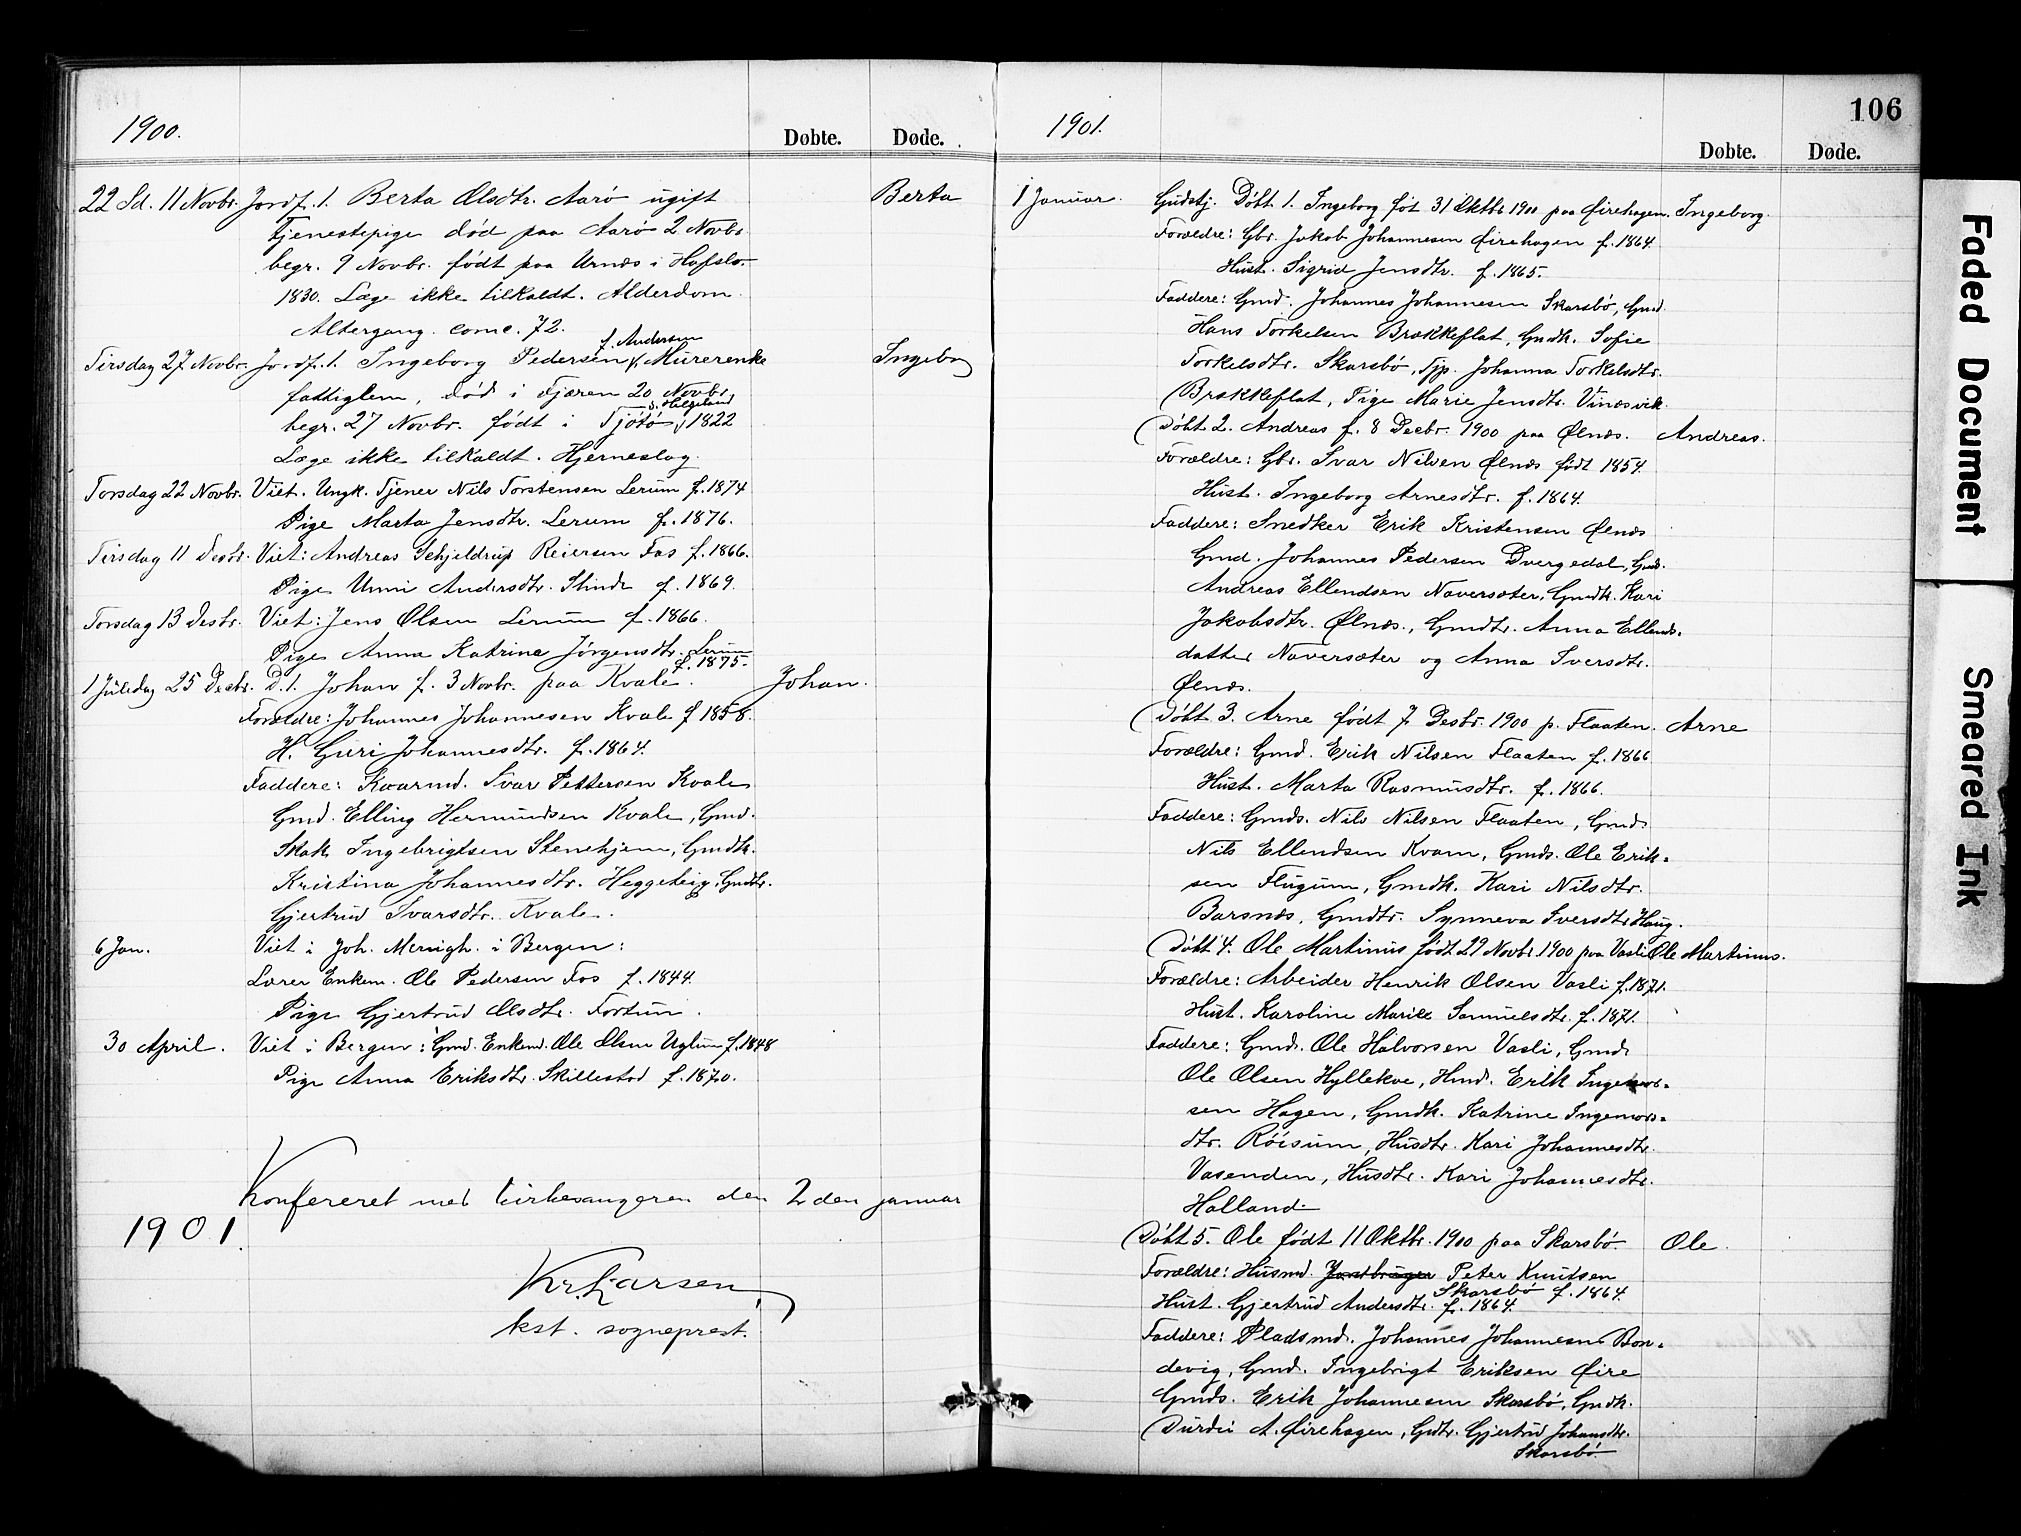 1900.
Døbte.
Døde.
22 Sd. 11 Novbr. Jordf. 1. Berta Olsdtr. Aarø ugift
Berta
Tjenestepige død paa Aarø 2 Novbr.
begr. 9 Novbr. født paa Urnæs i Hafslo.
1830. Læge ikke tilkaldt. Alderdom.
Altergang come. 72.
f. Andersen
Tirsdag 27 Novbr. Jordf. 1. Ingeborg Pedersen Murerenke
Ingeborg
fattiglem, død i Fjæren 20 Novbr.
s. Helgeland
begr. 27 Novbr. født i Tjøtø 1822
Læge ikke tilkaldt. Hjerneslag.
Torsdag 22 Novbr. Viet. Ungk. Tjener Nils Torstensen Lerum f. 1874
Pige Marta Jensdtr. Lerum f. 1876.
Tirsdag 11 Desbr. Viet: Andreas Schjeldrup Reiersen Fos f. 1866.
Pige Unni Andersdtr. Slinde f. 1869.
Torsdag 13 Desbr. Viet: Jens Olsen Lerum f. 1866.
Pige Anna Katrine Jørgensdtr. Lerum
f. 1875.
1 Juledag 25 Decbr. D. 1. Johan f. 3 Novbr. paa Kvale.
Johan.
Forældre: Johannes Johannesen Kvale f 1858.
H. Guri Johannesdtr. f. 1864.
Faddere: Kvarmd. Ivar Pettersen Kvale
Gmd. Elling Hermundsen Kvale, Gmd.
Skak Ingebrigtsen Stenehjem, Gmdk.
Kristina Johannesdtr. Heggeteig, Gmdtr.
Gjertrud Ivarsdtr. Kvale.
6 Jan. Viet i Joh. Menigh. i Bergen:
Lærer Enkem. Ole Pedersen Fos f. 1844.
Pige Gjertrud Olsdtr. Fortun.
30 April. Viet i Bergen: Gmd. Enkemd. Ole Olsen Uglum f. 1848
Pige Anna Eriksdtr. Skillestad f. 1870.
Konfereret med kirkesangeren den 2den januar
1901.
Kr. Larsen,
kst. sogneprest.
106
1901.
Døbte.
Døde.
1 Januar. Gudstj. Døbt 1. Ingeborg føt 31 Oktbr. 1900 paa Øirehagen.
Ingeborg.
Forældre: Gbr. Jakob Johannesen Øirehagen f. 1864.
Hust. Sigrid Jensdtr. f. 1865.
Faddere: Gmd. Johannes Johannesen Skarsbø, Gmd.
Hans Torkelsen Brækkeflat, Gmdk. Sofie
Torkelsdtr. Skarsbø, Tjp. Johanna Torkelsdtr.
Brækkeflat, Pige Marie Jensdtr. Vinæsvik.
Døbt 2. Andreas f. 8 Decbr. 1900 paa Ølnæs.
Andreas.
Forældre: Gbr. Ivar Nilsen Ølnæs født 1854
Hust. Ingeborg Arnesdtr. f. 1864.
Faddere: Snedker Erik Kristensen Ølnæs
Gmd. Johannes Pedersen Dvergedal, Gmds.
Andreas Ellendsen Naversæter, Gmdk. Kari
Jakobsdtr. Ølnæs., Gmdtr. Anna Ellends-
datter Naversæter og Anna Iversdtr.
Ølnæs.
Døbt 3. Arne født 7 Desbr. 1900 p. Flaaten.
Arne
Forældre: Gmd. Erik Nilsen Flaaten f. 1866
Hust. Marta Rasmusdtr. f. 1866.
Faddere: Gmds. Nils Nilsen Flaaten, Gmds
Nils Ellendsen Kvam, Gmds. Ole Erik-
sen Flugum, Gmdk. Kari Nilsdtr.
Barsnæs, Gmdtr. Synneva Iversdtr Haug.
Døbt 4. Ole Martinus født 29 Novbr. 1900 paa Vasli
Ole Martinus.
Forældre: Arbeider Henrik Olsen Vasli f. 1871.
Hust. Karoline Marie Samuelsdtr. f. 1871.
Faddere: Gmds. Ole Halvorsen Vasli, Gmds
Ole Olsen Hyllekve, Hmd. Erik Ingemors-
sen Hagen, Gmdk. Katrine Ingemors-
dtr. Røisum, Husdtr. Kari Johannesdtr.
Vasenden, Husdtr. Kari Johannesdtr.
Halland.
Døbt 5. Ole født 11 Oktbr. 1900 paa Skarsbø.
Ole.
Forældre: Husmd. Jordbruger Peter Knutsen
Skarsbø f. 1864.
Hust. Gjertrud Andersdtr. f. 1864
Faddere: Pladsmd. Johannes Johannesen Bon-
devig, Gmd. Ingebrigt Eriksen Øire
Gmds. Erik Johannesen Skarsbø, Gmdk.
Durdei A. Øirehagen, Gdtr. Gjertrud Johansdtr.
Skarsbø.
Faded Document
Smeared Ink